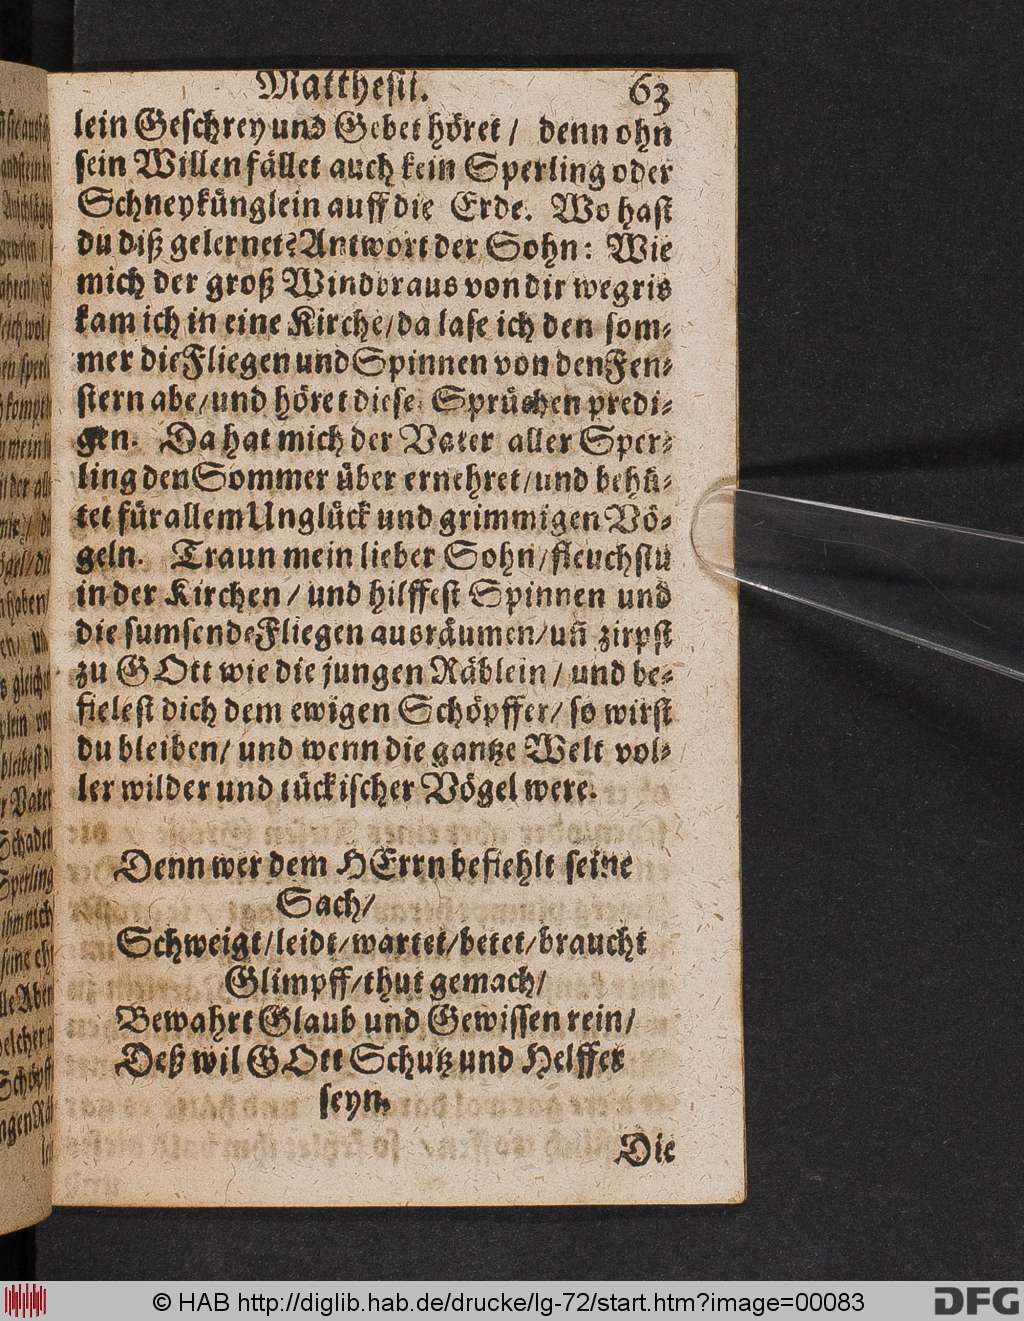 Matthesii. 63
lein Geschrey und Gebet höret / denn ohn
sein Willen fället auch kein Sperling oder
Schneykünglein auff die Erde. Wo hast
du diß gelernet? Antwort der Sohn: Wie
mich der groß Windbraus von dir wegris
kam ich in eine Kirche/da lase ich den som-
mer die Fliegen und Spinnen von den Fen-
stern abe/und höret diese Sprüchen predi-
gen. Da hat mich der Vater aller Sper-
ling den Sommer über ernehret/und behü-
tet für allem Unglück und grimmigen Vö-
geln. Traun mein lieber Sohn/fleuchstu
in der Kirchen / und hilffest Spinnen und
die sumsende Fliegen ausräumen/uñ zirpst
zu GOtt wie die jungen Räblein / und be-
fielest dich dem ewigen Schöpffer/ so wirst
du bleiben/ und wenn die gantze Welt vol-
ler wilder und tückischer Vögel were.
Denn wer dem HErrn befiehlt seine
Sach/
Schweigt/leidt/wartet/betet/braucht
Glimpff/thut gemach/
Bewahrt Glaub und Gewissen rein/
Deß wil GOtt Schutz und Helffer
seyn.
Die
© HAB http://diglib.hab.de/drucke/lg-72/start.htm?image=00083
DFG